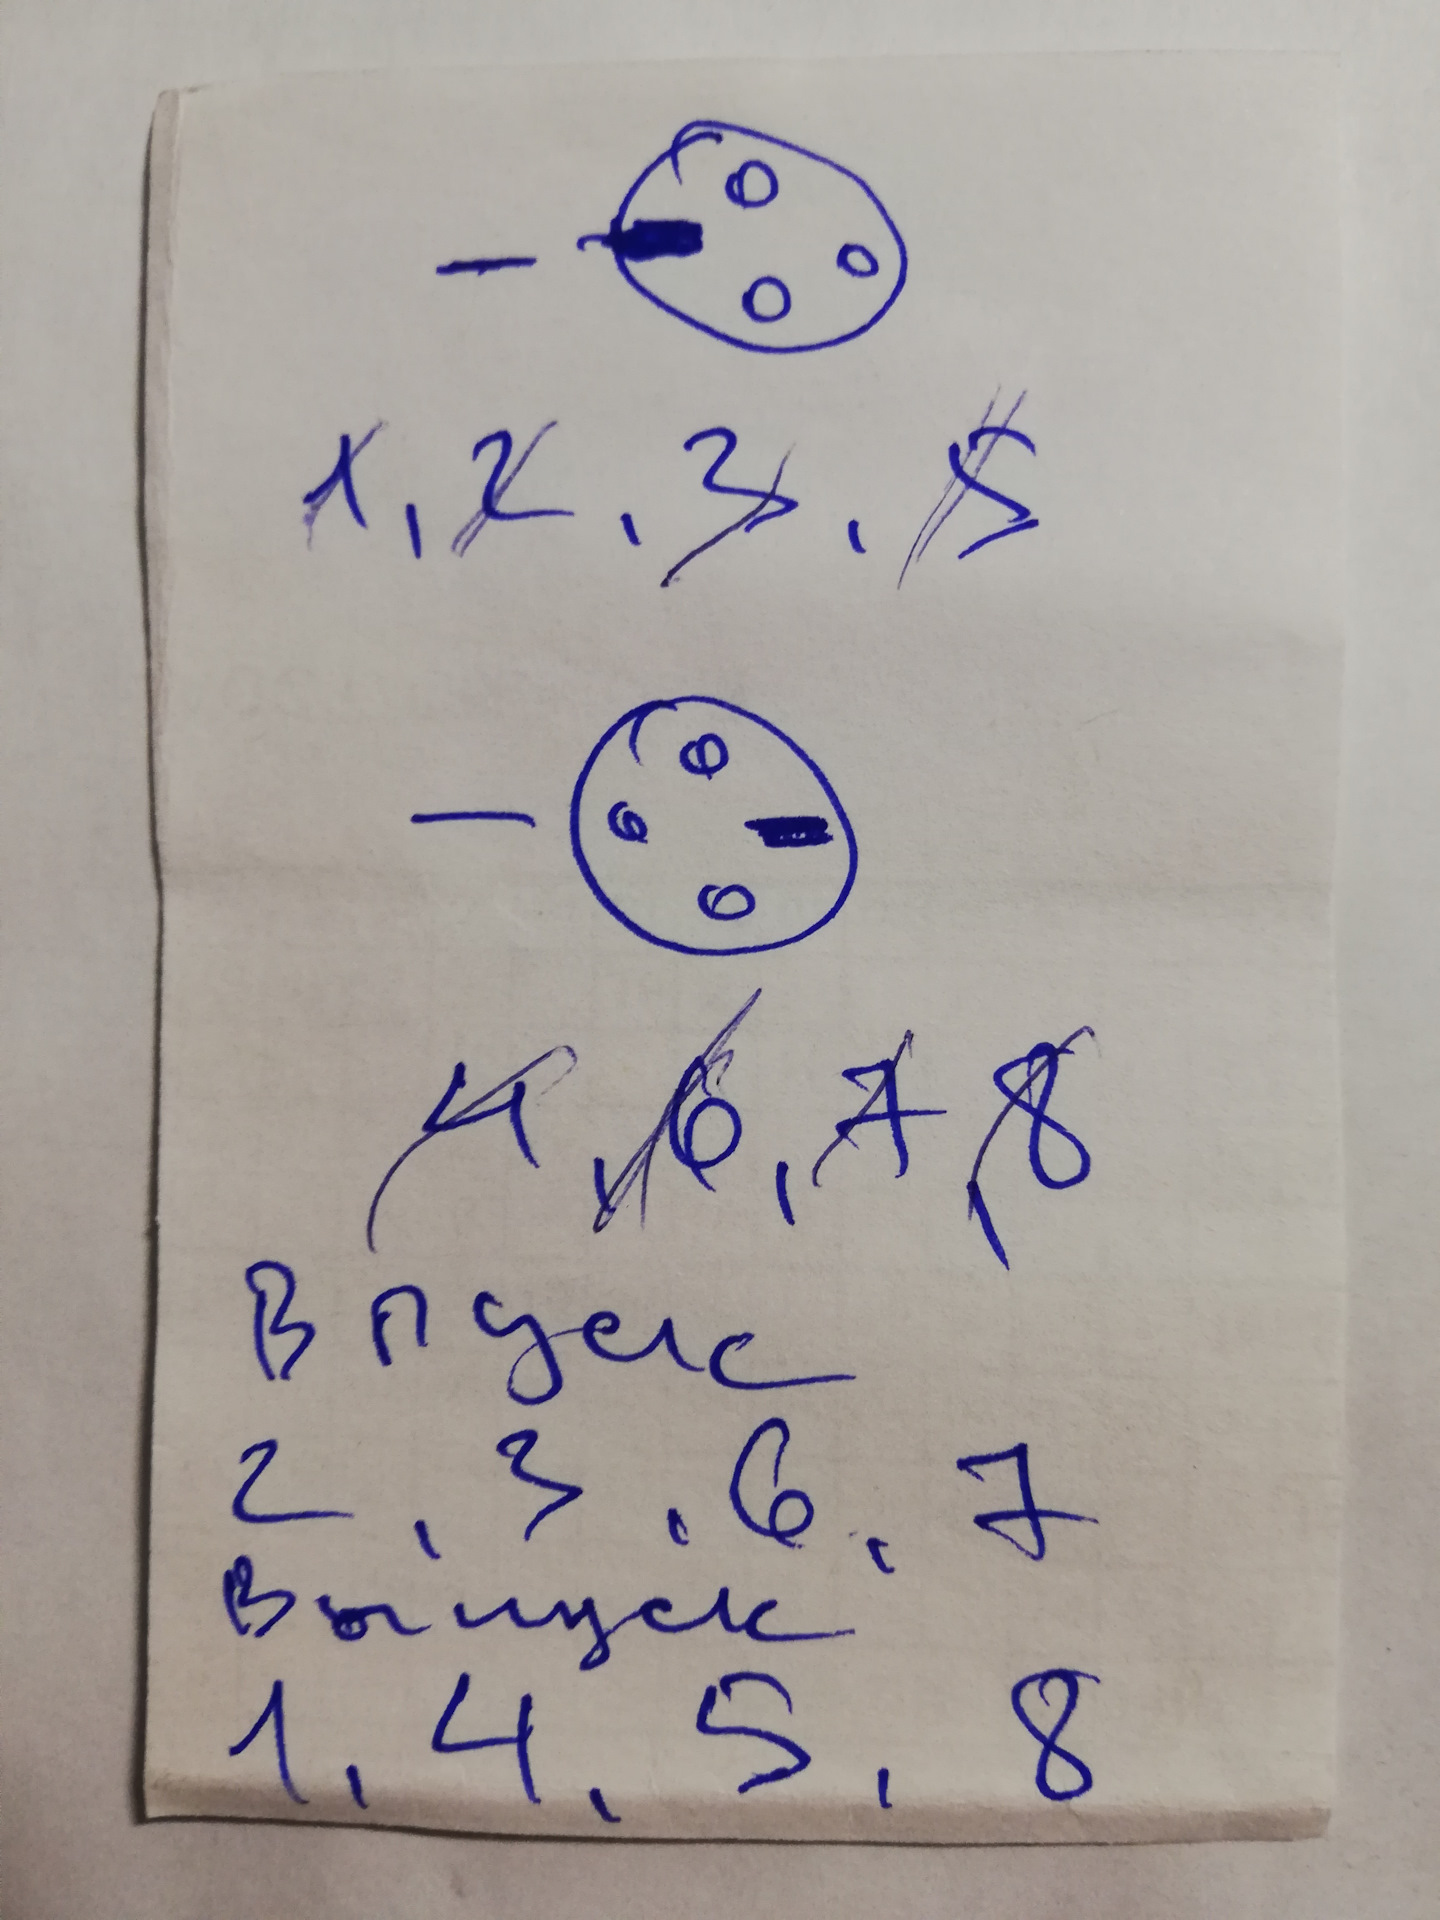 1, 2, 3, 5
4, 6, 7, 8
Впуск
2, 3, 6, 7
Выпуск
1, 4, 5, 8